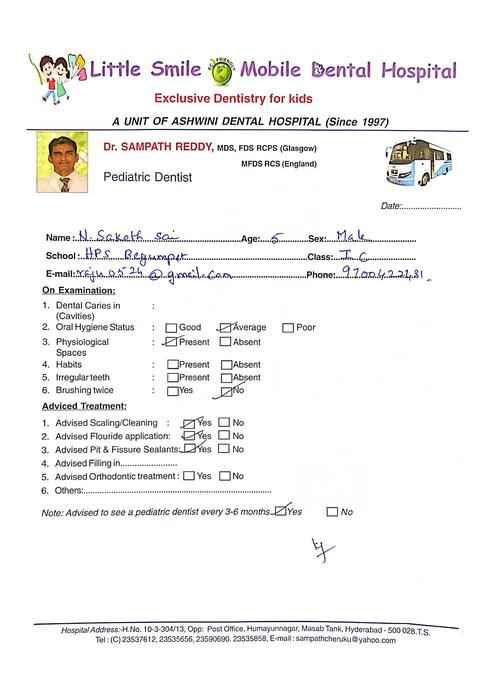 Little Smile Mobile Dental Hospital
Exclusive Dentistry for kids
A UNIT OF ASHWINI DENTAL HOSPITAL (Since 1997)
Dr. SAMPATH REDDY, MDS, FDS RCPS (Glasgow)
MFDS RCS (England)
Pediatric Dentist
Date:
Name: N. Saketh Sai Age: 5 Sex: Male
School: HPS Begumpet Class: I C
E-mail: raju0524@gmail.com Phone: 9700422481
On Examination:
1. Dental Caries in :
(Cavities)
2. Oral Hygiene Status : Good Average Poor
3. Physiological : Present Absent
Spaces
4. Habits : Present Absent
5. Irregular teeth : Present Absent
6. Brushing twice : Yes No
Adviced Treatment:
1. Advised Scaling/Cleaning : Yes No
2. Advised Flouride application: Yes No
3. Advised Pit & Fissure Sealants: Yes No
4. Advised Filling in
5. Advised Orthodontic treatment : Yes No
6. Others:
Note: Advised to see a pediatric dentist every 3-6 months Yes No
Hospital Address:-H.No. 10-3-304/13, Opp: Post Office, Humayunnagar, Masab Tank, Hyderabad - 500 028.T.S.
Tel : (C) 23537612, 23535656, 23590690, 23535858, E-mail : sampathcheruku@yahoo.com